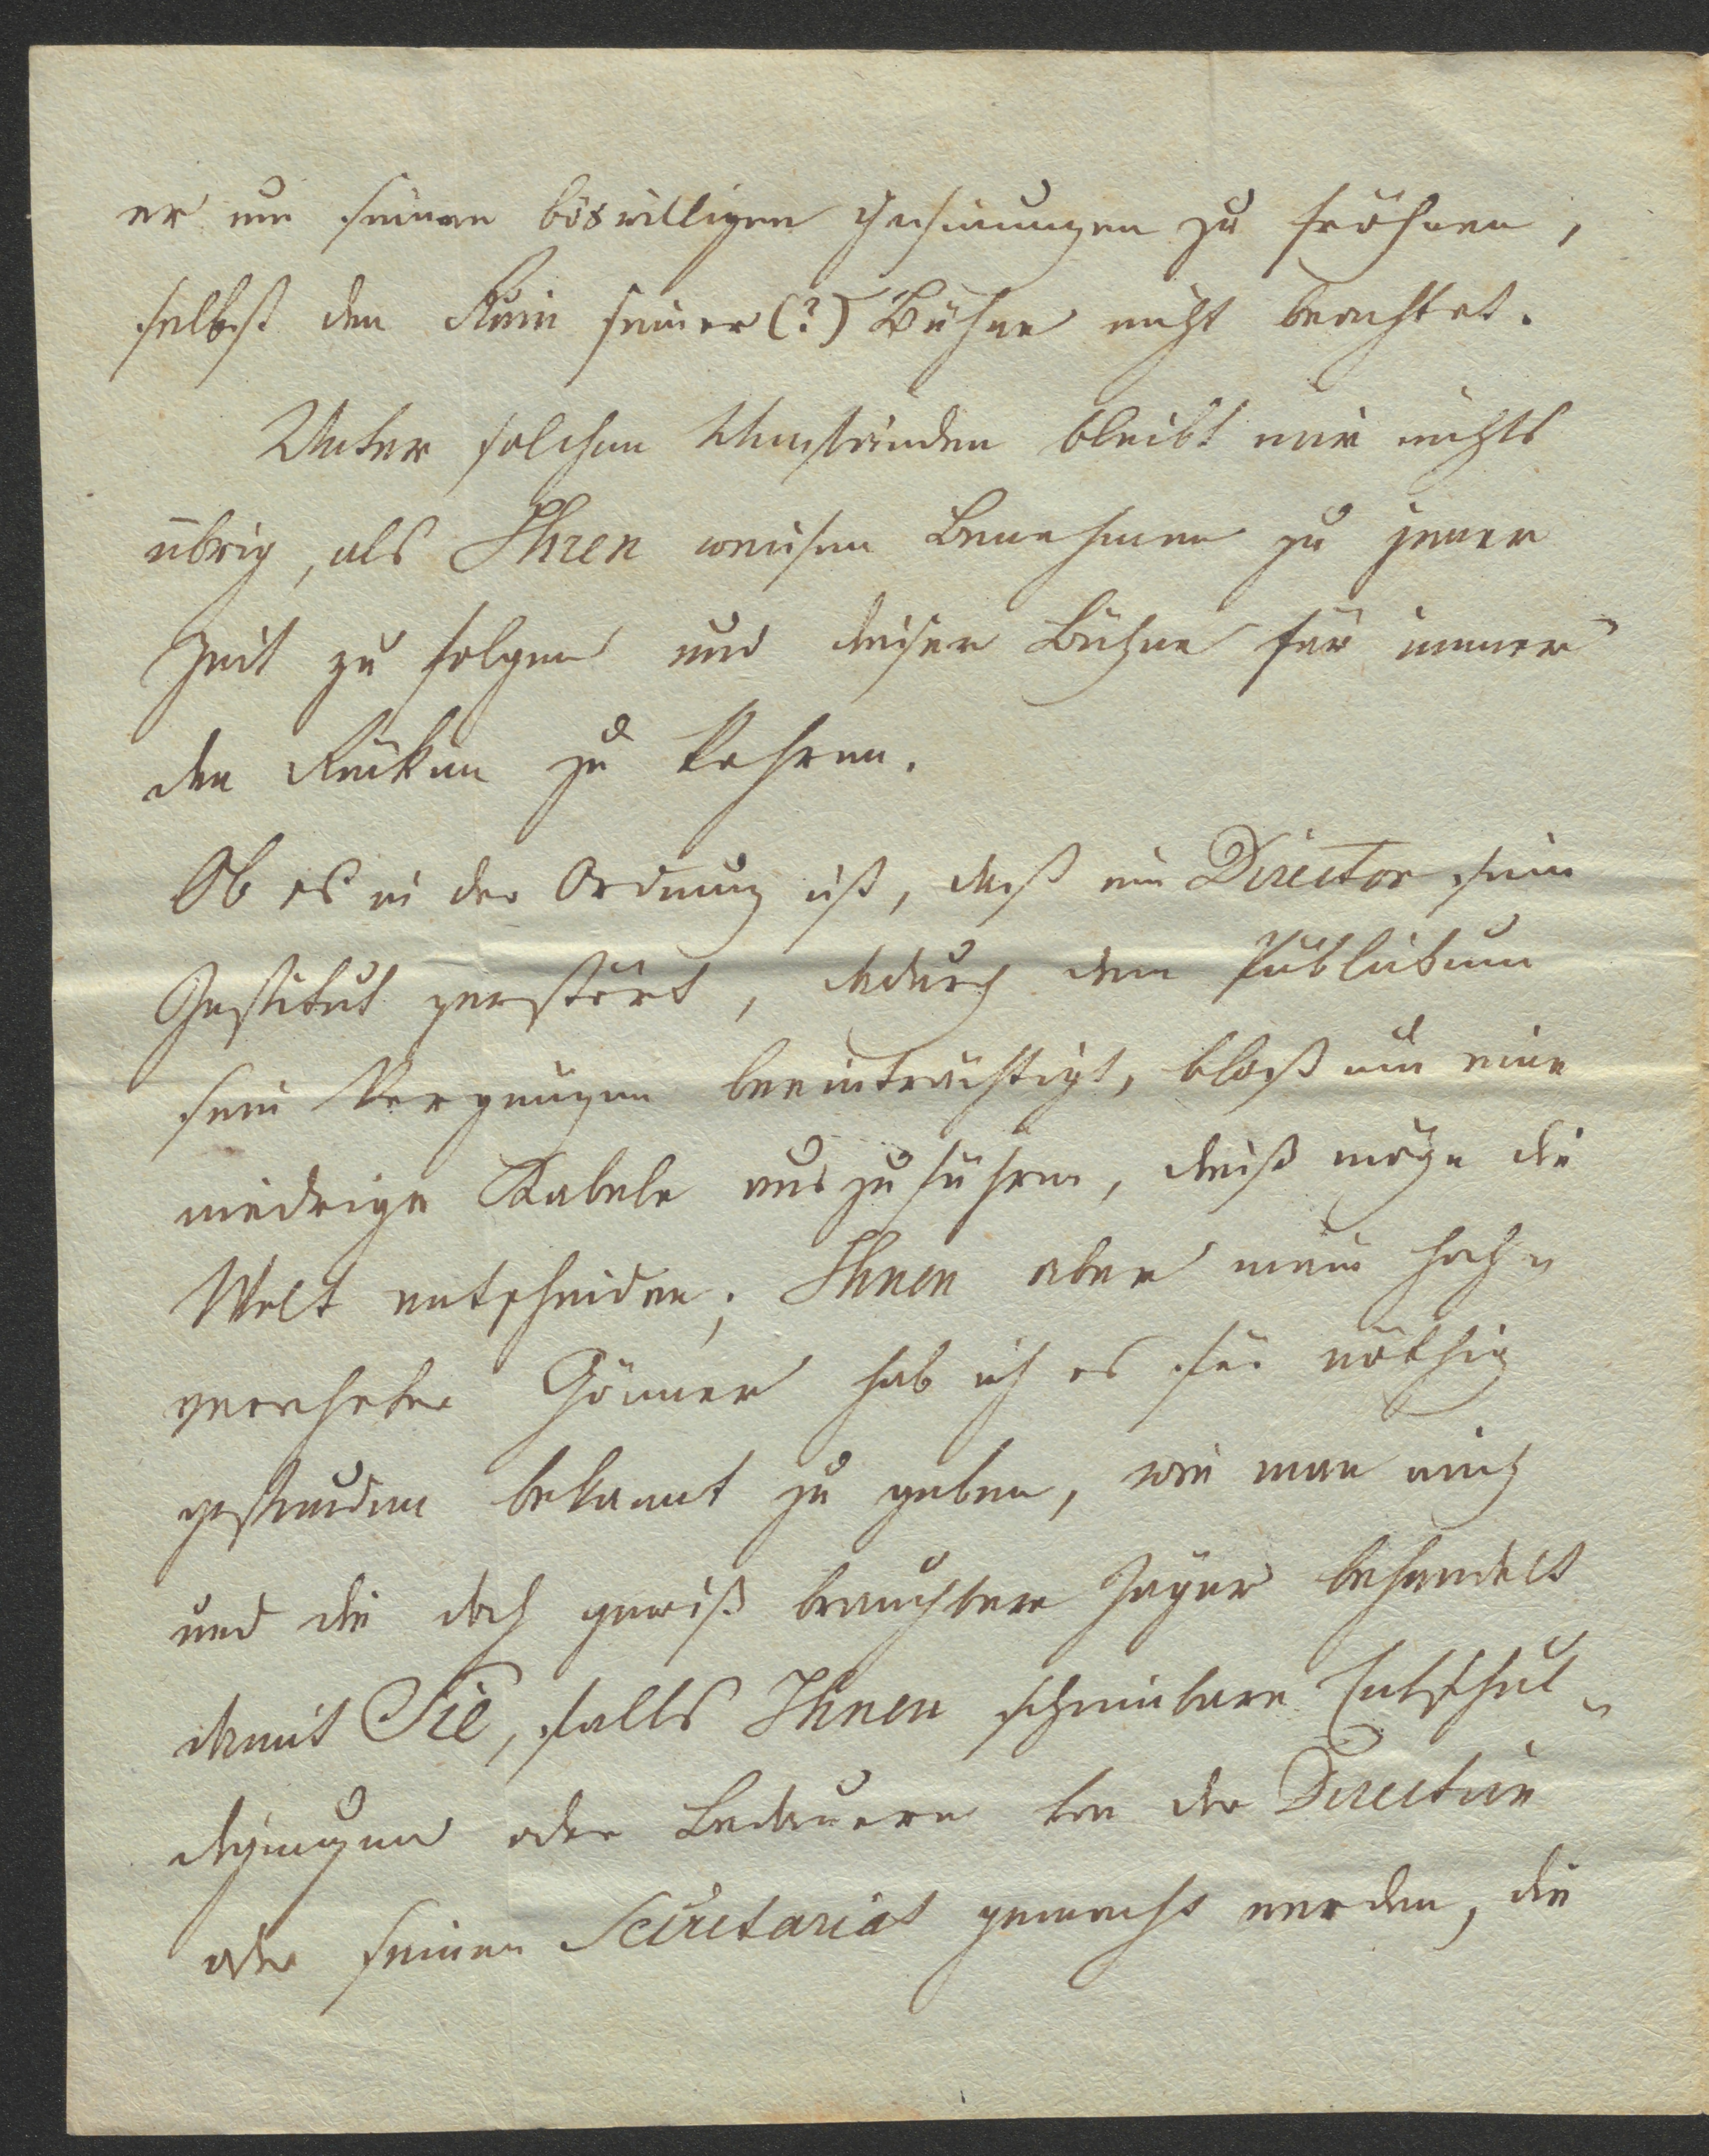 er um seinen böswilligen Gesinnungen zu fröhnen,
selbst den Ruin seiner (?) Bühne nicht beachtet.
Unter solchen Umständen bleibt mir nichts
übrig, als Ihren weisen Benehmen zu jener
Zeit zu folgen und dieser Bühne für immer
den Rücken zu kehren.
Ob es in der Ordnung ist, daß ein Director sein
Institut zerstört, dadurch dem Publikum
sein Vergnügen beeinträchtigt, bloß um eine
niedrige Kabale auszuführen, dieß möge die
Welt entscheiden; Ihnen aber mein hoch-
verehrter Gönner hab ich es für nöthig
gefunden bekannt zu geben, wie man mich
und die doch gewiß brauchbare Jäger behandelt
damit Sie, falls Ihnen scheinbare Entschul-
digungen oder Bedauern von der Direction
oder seinem Secretariat gemacht werden, die